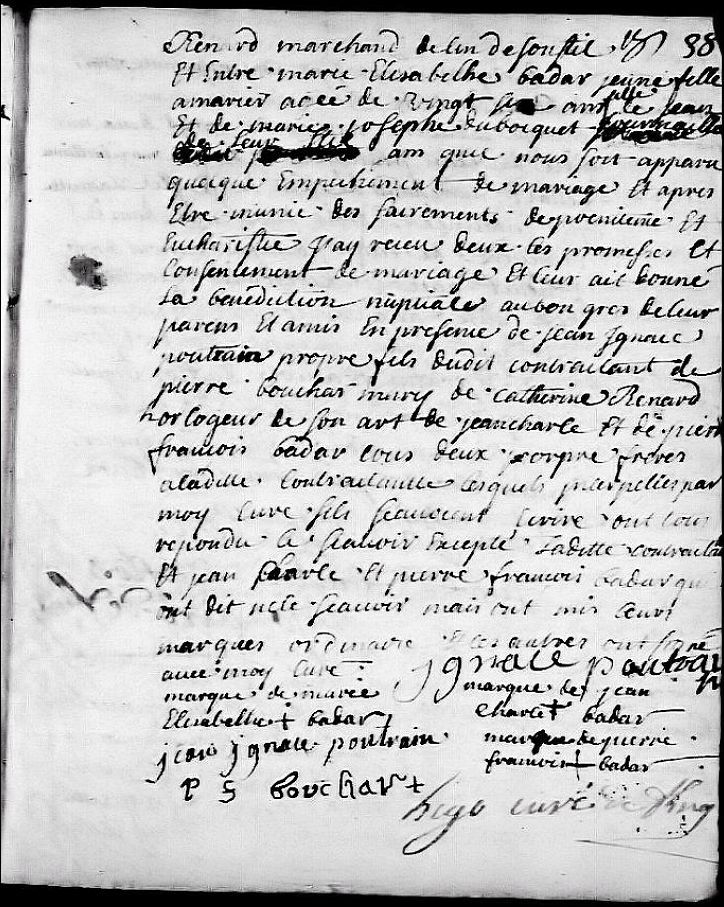 Renard marchand de lin de son stil 38
Et Entre marie Elisabethe badar jeune fille
a marier ageé de vingt six ans fille de jean
Et de marie josephe dubocquet
de leur sans que nous soit apparu
quelque Empechement de mariage Et apres
Etre munie des sacrements de penitence Et
Eucharistie J'ay receu deux les promesses Et
Consentement de mariage Et leur ait donné
La benediction nuptiale au bon grez de leur
parens Et amis En presence de jean Ignace
poutrain propre fils dudit contractant de
pierre bouchar mary de catherine Renard
horlogeur de son art de jean charle Et de pierre
francois badar tous deux propre freres
a laditte Contractante lesquels interpellés par
moy Curé s'ils scauoient Ecrire ont tous
repondu le scauoir Excepté Laditte contractan
Et jean charle Et pierre francois badar qui
ont dit ne le scauoir mais ont mis leurs
marques ordinaire Et les autres ont signé
avec moy Curé Ignace poutrain
marque de marie marque de jean
Elisabethe + badar charle + badar
jean ignace poutrain marque de pierre
francois + badar
P S bouchar +
curé